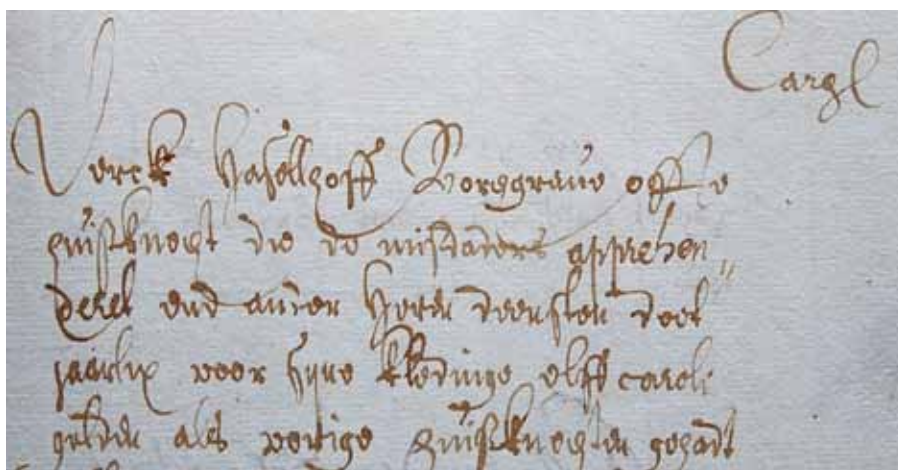 Cargl
Derck Hasellhoff Borchgraue offte
huisknecht die de misdaders apprehen
deert und ander heren deensten doet
jaarlix voor syne kledinge elff caroli
gulden als vorige huisknechten gehadt